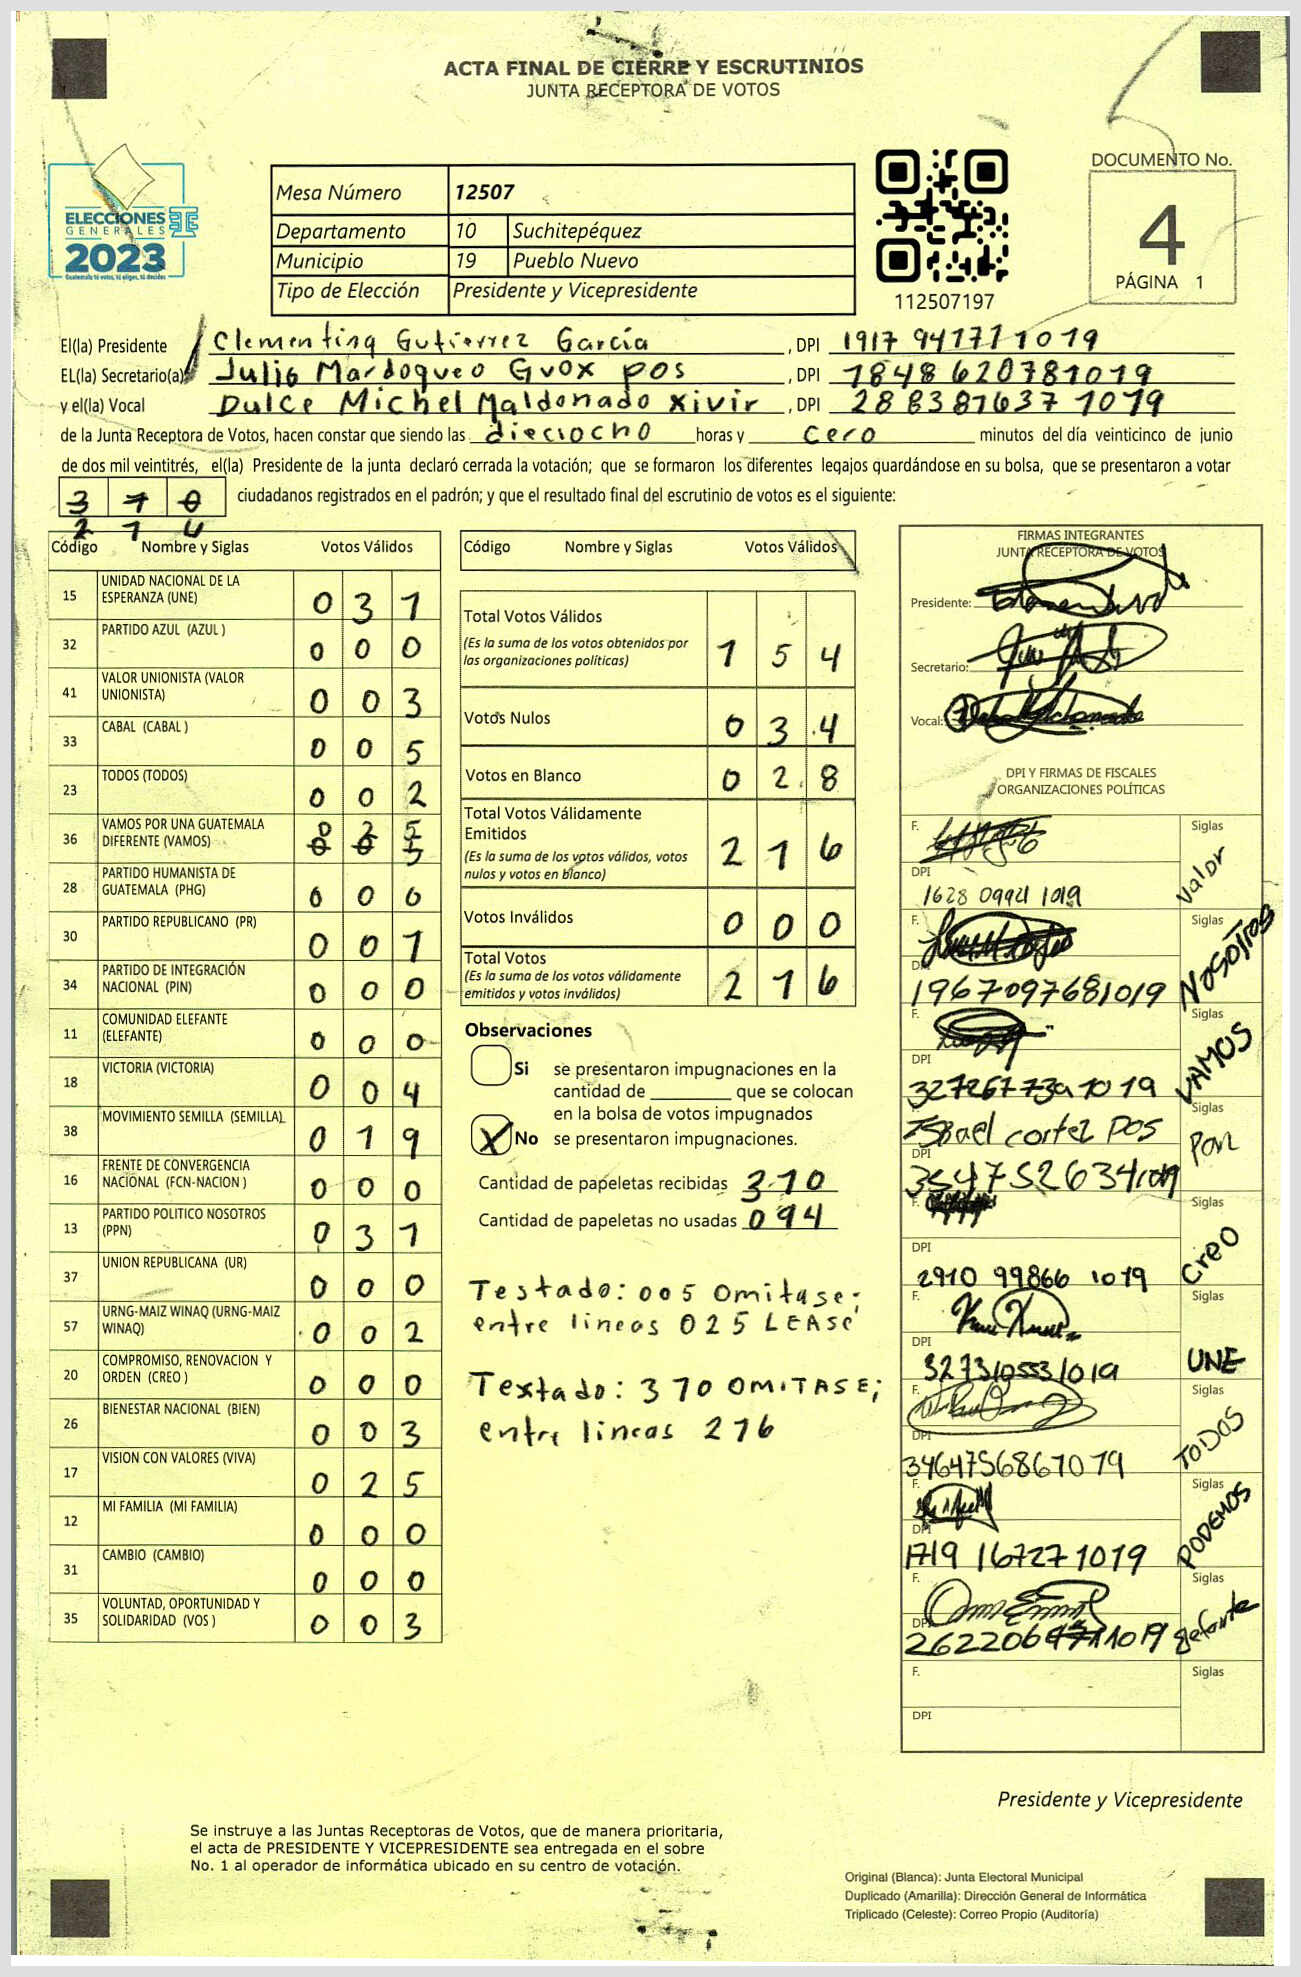 ACTA FINAL DE CIERRE Y ESCRUTINIOS
JUNTA RECEPTORA DE VOTOS
ELECCIONES
GENERALES
2023
Guatemala tú votas, tú eliges, tú decides
Mesa Número 12507
Departamento 10 Suchitepéquez
Municipio 19 Pueblo Nuevo
Tipo de Elección Presidente y Vicepresidente
112507197
DOCUMENTO No.
4
PÁGINA 1
El(la) Presidente Clementina Gutierrez García, DPI 1917 94177 1019
EL(la) Secretario(a) Julio Mardoqueo Guox pos, DPI 1848 62078 1019
y el(la) Vocal Dulce Michel Maldonado Xivir, DPI 288381637 1019
de la Junta Receptora de Votos, hacen constar que siendo las dieciocho horas y cero minutos del día veinticinco de junio
de dos mil veintitrés, el(la) Presidente de la junta declaró cerrada la votación; que se formaron los diferentes legajos guardándose en su bolsa, que se presentaron a votar
3 7 0 ciudadanos registrados en el padrón; y que el resultado final del escrutinio de votos es el siguiente:
2 1 6
Código Nombre y Siglas Votos Válidos
15 UNIDAD NACIONAL DE LA ESPERANZA (UNE) 0 3 1
32 PARTIDO AZUL (AZUL ) 0 0 0
41 VALOR UNIONISTA (VALOR UNIONISTA) 0 0 3
33 CABAL (CABAL ) 0 0 5
23 TODOS (TODOS) 0 0 2
36 VAMOS POR UNA GUATEMALA DIFERENTE (VAMOS) 0 2 5
0 0 5
28 PARTIDO HUMANISTA DE GUATEMALA (PHG) 0 0 0
30 PARTIDO REPUBLICANO (PR) 0 0 1
34 PARTIDO DE INTEGRACIÓN NACIONAL (PIN) 0 0 0
11 COMUNIDAD ELEFANTE (ELEFANTE) 0 0 0
18 VICTORIA (VICTORIA) 0 0 4
38 MOVIMIENTO SEMILLA (SEMILLA) 0 1 9
16 FRENTE DE CONVERGENCIA NACIONAL (FCN-NACION ) 0 0 0
13 PARTIDO POLITICO NOSOTROS (PPN) 0 3 1
37 UNION REPUBLICANA (UR) 0 0 0
57 URNG-MAIZ WINAQ (URNG-MAIZ WINAQ) 0 0 2
20 COMPROMISO, RENOVACION Y ORDEN (CREO ) 0 0 0
26 BIENESTAR NACIONAL (BIEN) 0 0 3
17 VISION CON VALORES (VIVA) 0 2 5
12 MI FAMILIA (MI FAMILIA) 0 0 0
31 CAMBIO (CAMBIO) 0 0 0
35 VOLUNTAD, OPORTUNIDAD Y SOLIDARIDAD (VOS ) 0 0 3
Código Nombre y Siglas Votos Válidos
Total Votos Válidos 1 5 4
(Es la suma de los votos obtenidos por
las organizaciones políticas)
Votos Nulos 0 3 4
Votos en Blanco 0 2 8
Total Votos Válidamente
Emitidos 2 1 6
(Es la suma de los votos válidos, votos
nulos y votos en blanco)
Votos Inválidos 0 0 0
Total Votos 2 1 6
(Es la suma de los votos válidamente
emitidos y votos inválidos)
Observaciones
Si se presentaron impugnaciones en la
cantidad de ________ que se colocan
en la bolsa de votos impugnados
X No se presentaron impugnaciones.
Cantidad de papeletas recibidas 310
Cantidad de papeletas no usadas 094
Testado: 005 Omitase;
entre lineas 025 LEASE
Textado: 370 OMITASE;
entre lineas 216
FIRMAS INTEGRANTES
JUNTA RECEPTORA DE VOTOS
Presidente:
Secretario:
Vocal:
DPI Y FIRMAS DE FISCALES
ORGANIZACIONES POLÍTICAS
F. Siglas Valor
DPI
1628 09921 1019
F. Siglas NOSOTROS
DPI
1967097681019
F. Siglas VAMOS
DPI
F. Siglas
Isbael cortez POS
DPI
3547526341019
F. Siglas Creo
DPI
2910 99866 1019
F. Siglas UNE
DPI
3273105531019
F. Siglas TODOS
DPI
3464756867019
F. Siglas PODEMOS
DPI
1719 16727 1019
F. Siglas elefante
DPI
F. Siglas
DPI
Presidente y Vicepresidente
Se instruye a las Juntas Receptoras de Votos, que de manera prioritaria,
el acta de PRESIDENTE Y VICEPRESIDENTE sea entregada en el sobre
No. 1 al operador de informática ubicado en su centro de votación.
Original (Blanca): Junta Electoral Municipal
Duplicado (Amarilla): Dirección General de Informática
Triplicado (Celeste): Correo Propio (Auditoría)